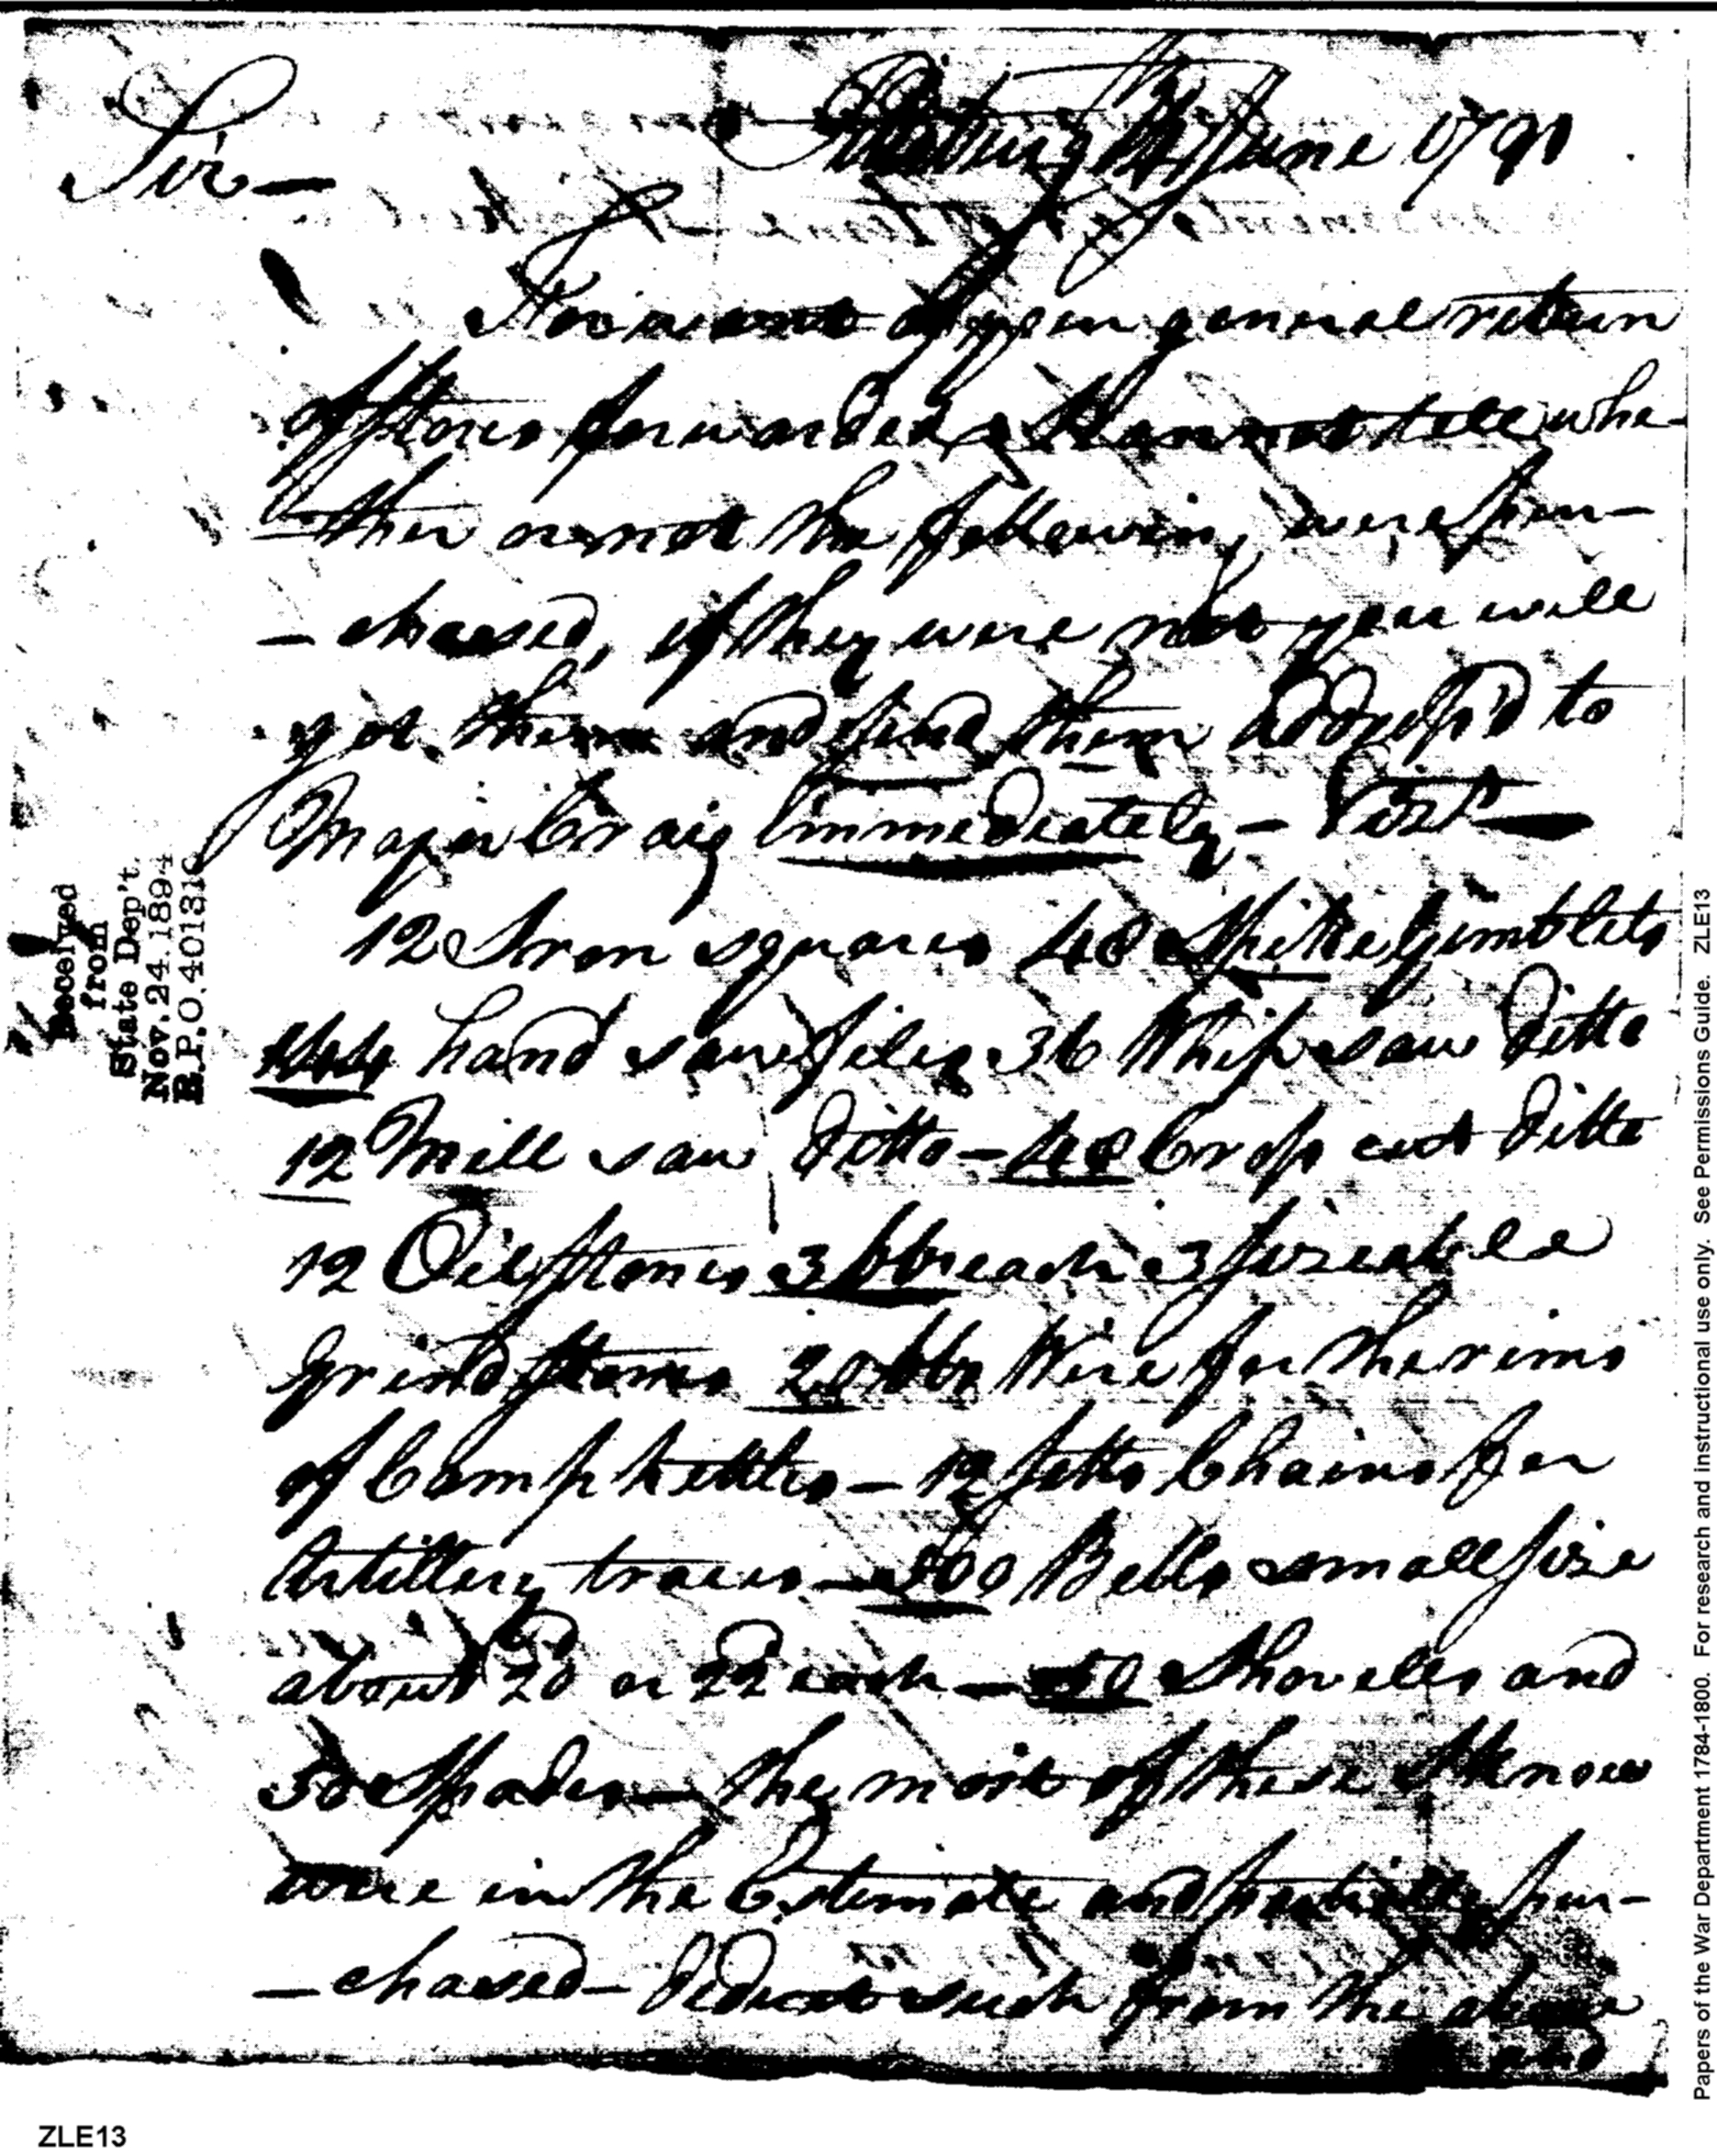 Sir —
June 1791
For want of your general return
of stores forwarded, I cannot tell whe-
-ther or not the following were pur-
- chased, if they were not you will
get them and send them address'd to
Major Craig immediately — Vizt —
12 Iron squares 48 Spike Gimblets
144 hand saw files 36 Whip saw ditto
12 Mill saw ditto — 48 Cross cut ditto
12 Oil stones 3 lbs each 3 sizeable
Grindstones 20 lbs Wire for the rims
of Camp kettles — 12 setts Chains for
Artillery traces — 500 Bells small size
about 20 or 22 each — 50 Shovels and
50 Spades — the most of these I know
were in the Estimate and partially pur-
- chased — deduct such from the above
and
Received
from
State Dep't.
Nov. 24. 1894
R.P.O. 401310
Papers of the War Department 1784-1800. For research and instructional use only. See Permissions Guide. ZLE13
ZLE13